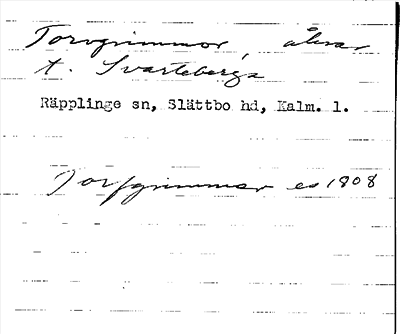 Torvgrimmor, åkrar
t. Svarteberga
Räpplinge sn, Slättbo hd, Kalm. l.
Torfgrimmar es 1808